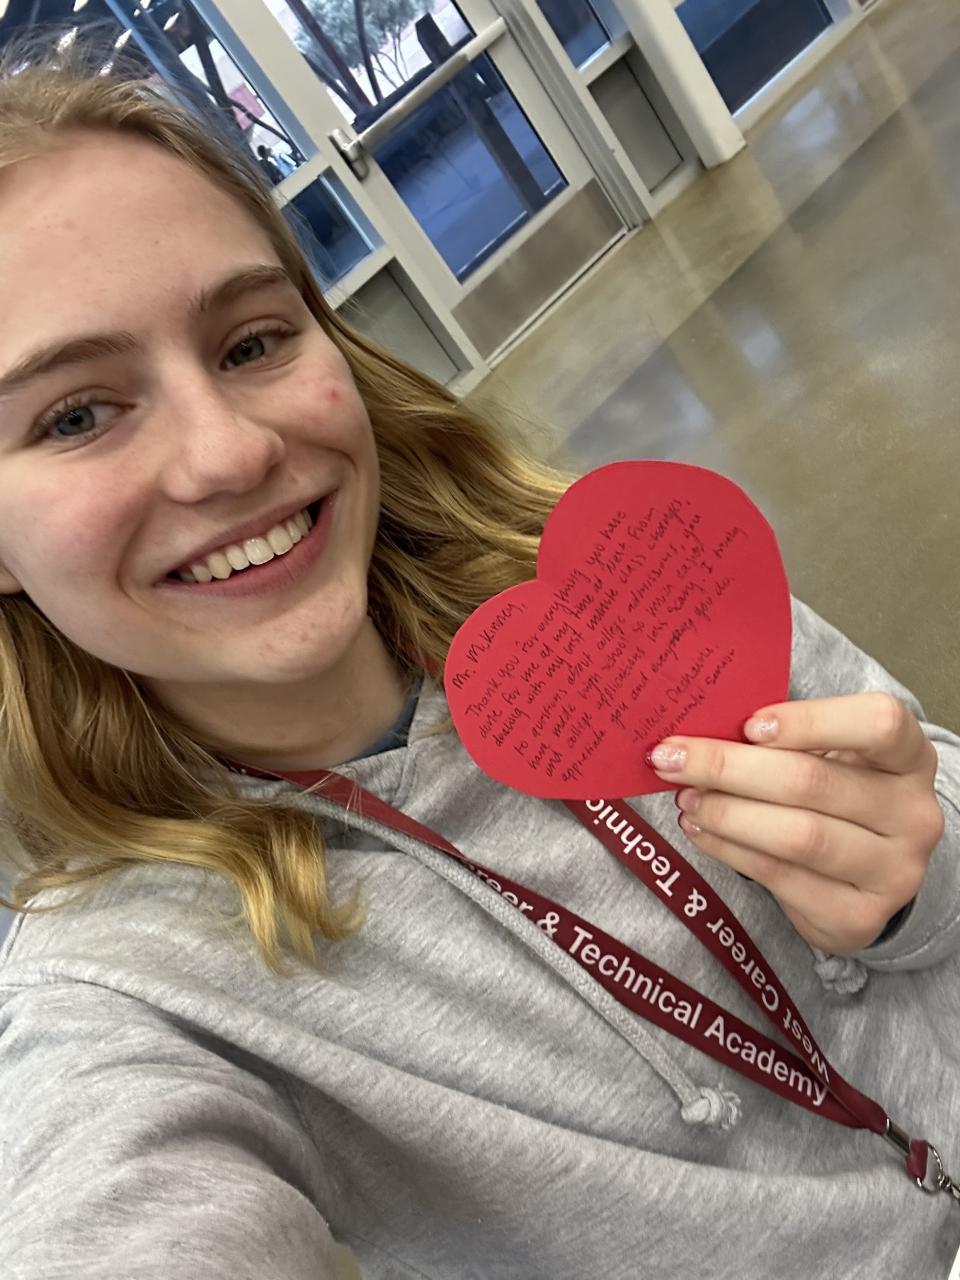 Mr. McKinney,
Thank you for everything you have
done for me at my time at West. From
dealing with my last minute class changes,
to questions about college admissions, you
have made high school so much easier
and college applications less scary. I truly
appreciate you and everything you do.
Career & Technical Academy
West Career & Technic